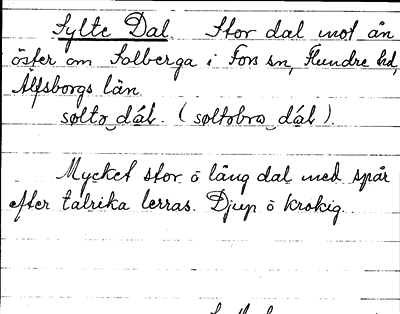 Sylte Dal. Stor dal mot ån
öster om Solberga i Fors sn, Flundre hd,
Älfsborgs län.
søltə dál. (søltobrə dál).
Mycket stor o lång dal med spår
efter talrika lerras. Djup o krokig.